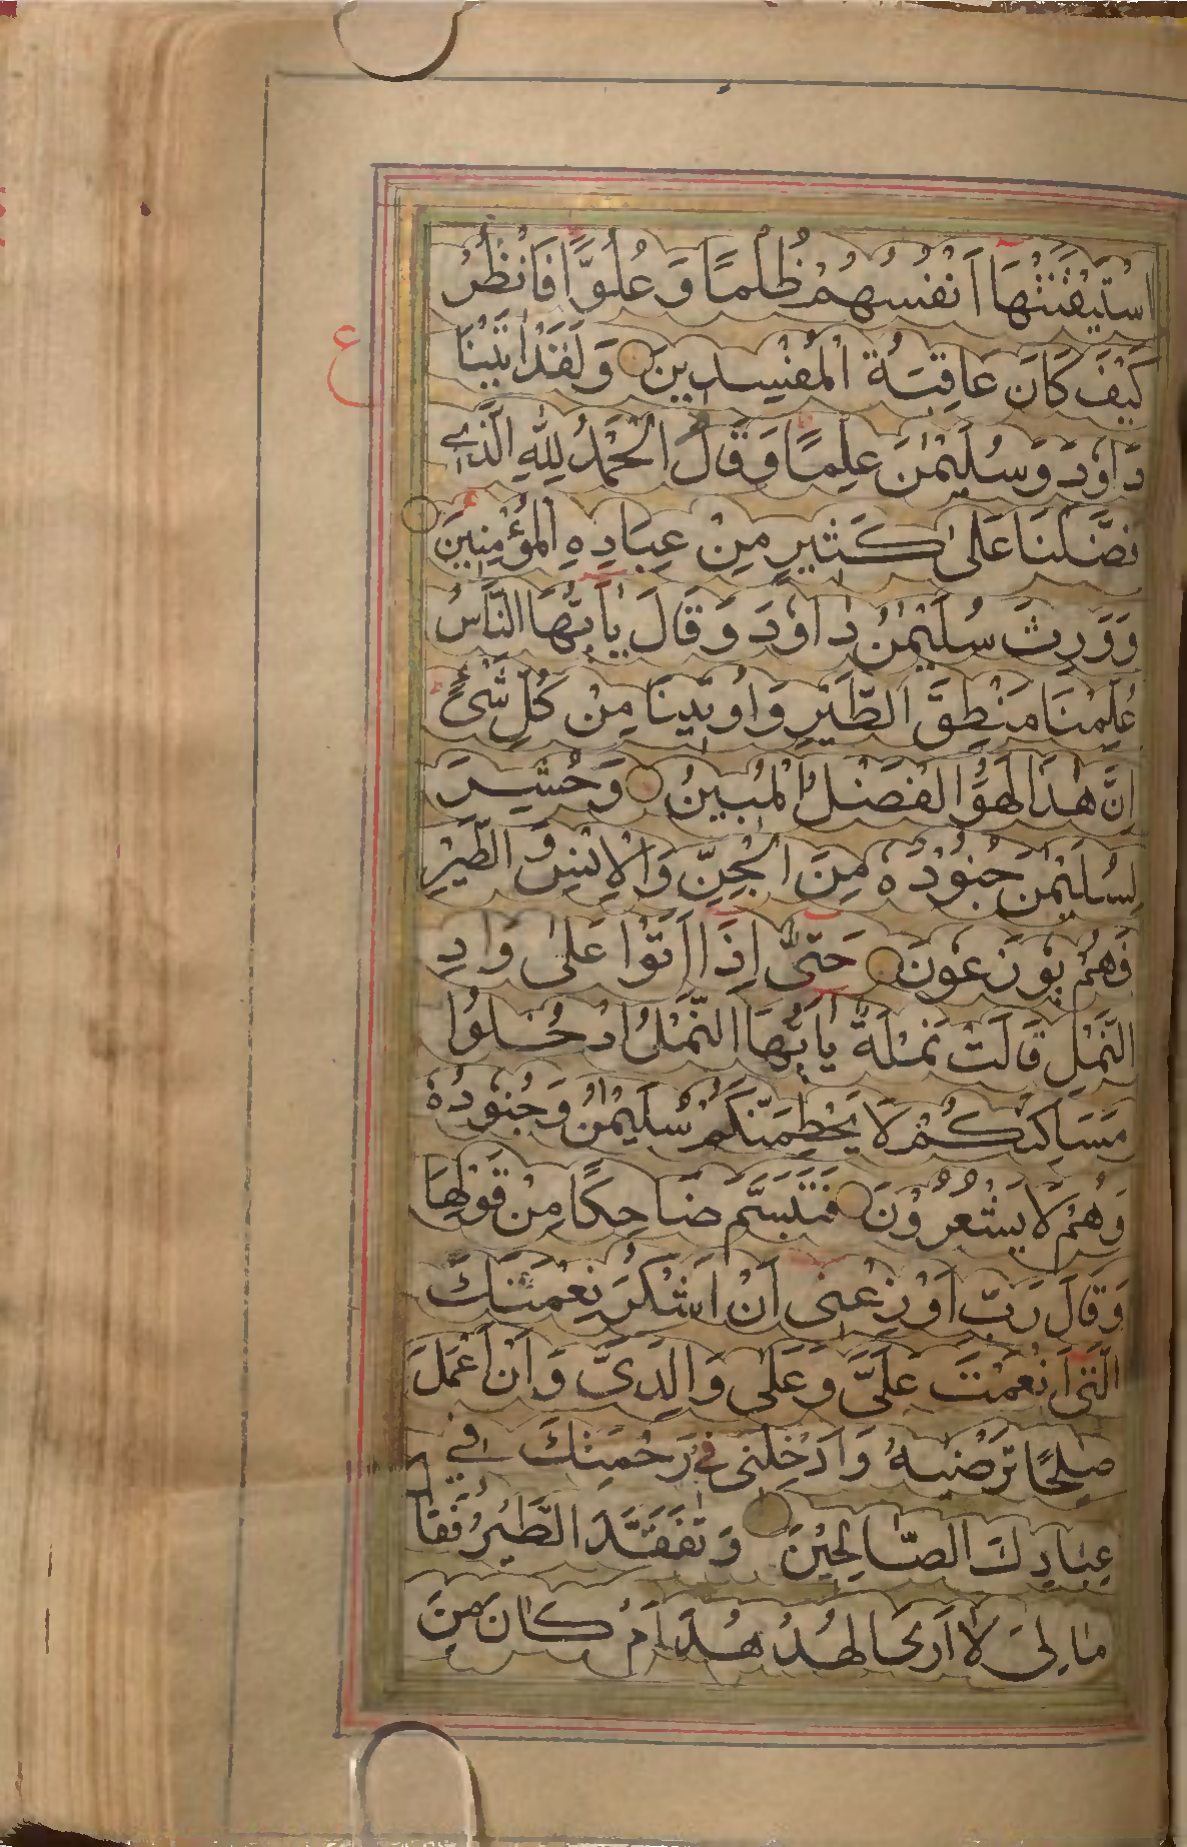 اسْتَيْقَنَتْهَا اَنْفُسُهُمْ ظُلْمًا وَ عُلُوًّا فَانْظُرْ
كَيْفَ كَانَ عَاقِبَةُ الْمُفْسِدِينَ وَلَقَدْ اٰتَيْنَا
ع
دَاوٗدَ وَ سُلَيْمٰنَ عِلْمًا وَ قَالَ الْحَمْدُ لِلّٰهِ الَّذِي
فَضَّلَنَا عَلٰى كَثِيرٍ مِنْ عِبَادِهِ الْمُؤْمِنِينَ
وَ وَرِثَ سُلَيْمٰنُ دَاوٗدَ وَ قَالَ يٰاَيُّهَا النَّاسُ
عُلِّمْنَا مَنْطِقَ الطَّيْرِ وَ اُوتِينَا مِنْ كُلِّ شَىْءٍ
اِنَّ هٰذَا لَهُوَ الْفَضْلُ الْمُبِينُ وَ حُشِرَ
لِسُلَيْمٰنَ جُنُودُهٗ مِنَ الْجِنِّ وَ الْاِنْسِ وَ الطَّيْرِ
فَهُمْ يُوزَعُونَ حَتّٰى اِذَا اَتَوْا عَلٰى وَادِ
النَّمْلِ قَالَتْ نَمْلَةٌ يٰاَيُّهَا النَّمْلُ ادْخُلُوا
مَسَاكِنَكُمْ لَا يَحْطِمَنَّكُمْ سُلَيْمٰنُ وَ جُنُودُهٗ
وَهُمْ لَا يَشْعُرُوْنَ فَتَبَسَّمَ ضَاحِكًا مِنْ قَوْلِهَا
وَ قَالَ رَبِّ اَوْزِعْنِى اَنْ اَشْكُرَ نِعْمَتَكَ
الَّتِى اَنْعَمْتَ عَلَىَّ وَ عَلٰى وَالِدَىَّ وَ اَنْ اَعْمَلَ
صٰلِحًا تَرْضٰيهُ وَ اَدْخِلْنِى فِي رَحْمَتِكَ فِي
عِبَادِكَ الصَّالِحِيْنَ وَ تَفَقَّدَ الطَّيْرَ فَقَالَ
مَا لِىَ لَا اَرَى الْهُدْهُدَ اَمْ كَانَ مِنَ